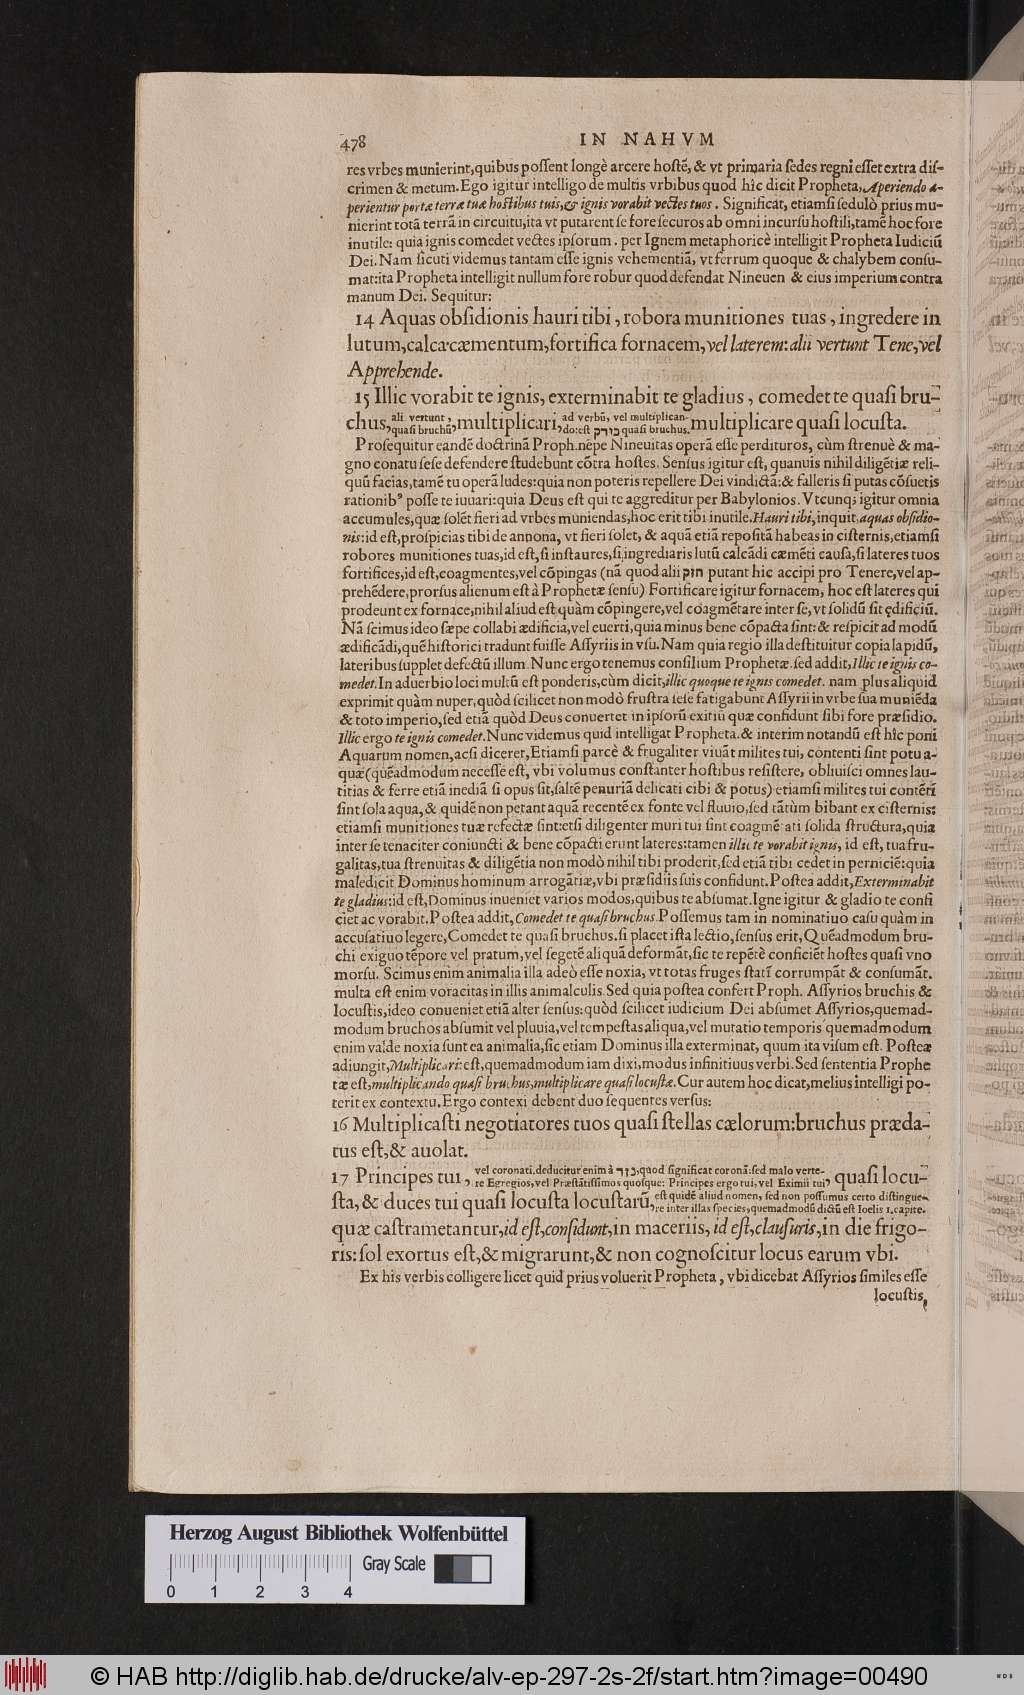 478 IN NAHVM
res vrbes munierint,quibus poſſent longè arcere hoſtē,& vt primaria ſedes regni eſſet extra diſ-
crimen & metum.Ego igitur intelligo de multis vrbibus quod hîc dicit Propheta,Aperiendo a-
perientur portæ terræ tuæ hoſtibus tuis,& ignis vorabit vectes tuos. Significat, etiamſi ſedulò prius mu-
nierint totā terrā in circuitu,ita vt putarent ſe fore ſecuros ab omni incurſu hoſtili,tamē hoc fore
inutile: quia ignis comedet vectes ipſorum. per Ignem metaphoricè intelligit Propheta Iudiciū
Dei. Nam ſicuti videmus tantam eſſe ignis vehementiā, vt ferrum quoque & chalybem conſu-
mat:ita Propheta intelligit nullum fore robur quod defendat Nineuen & eius imperium contra
manum Dei. Sequitur:
14 Aquas obſidionis hauri tibi, robora munitiones tuas, ingredere in
lutum,calca cæmentum,fortifica fornacem,vel laterem: alii vertunt Tene,vel
Apprehende.
15 Illic vorabit te ignis, exterminabit te gladius, comedet te quaſi bru-
chus, ali vertunt, quaſi bruchū, multiplicari, ad verbū, vel multiplican-do:eſt כירק quaſi bruchus. multiplicare quaſi locuſta.
Proſequitur eandē doctrinā Proph.nēpe Nineuitas operā eſſe perdituros, cùm ſtrenuè & ma-
gno conatu ſeſe defendere ſtudebunt cōtra hoſtes. Senſus igitur eſt, quanuis nihil diligētiæ reli-
quū facias,tamē tu operā ludes:quia non poteris repellere Dei vindictā:& falleris ſi putas cōſuetis
rationibꝰ poſſe te iuuari:quia Deus eſt qui te aggreditur per Babylonios. Vtcunq; igitur omnia
accumules,quæ ſolēt fieri ad vrbes muniendas,hoc erit tibi inutile.Hauri tibi,inquit,aquas obſidio-
nis:id eſt,proſpicias tibi de annona, vt fieri ſolet, & aquā etiā repoſitā habeas in ciſternis,etiamſi
robores munitiones tuas,id eſt,ſi inſtaures,ſi ingrediaris lutū calcādi cæmēti cauſa,ſi lateres tuos
fortifices,id eſt,coagmentes,vel cōpingas (nā quod alii חזק putant hic accipi pro Tenere,vel ap-
prehēdere,prorſus alienum eſt à Prophetæ ſenſu) Fortificare igitur fornacem, hoc eſt lateres qui
prodeunt ex fornace,nihil aliud eſt quàm cōpingere,vel coagmētare inter ſe, vt ſolidū ſit ędificiū.
Nā ſcimus ideo ſæpe collabi ædificia,vel euerti,quia minus bene cōpacta ſint:& reſpicit ad modū
ædificādi,quē hiſtorici tradunt fuiſſe Aſſyriis in vſu. Nam quia regio illa deſtituitur copia lapidū,
lateribus ſupplet defectū illum. Nunc ergo tenemus conſilium Prophetæ.ſed addit,Illic te ignis co-
medet.In aduerbio loci multū eſt ponderis,cùm dicit,illic quoque te ignis comedet. nam plus aliquid
exprimit quàm nuper,quòd ſcilicet non modò fruſtra ſeſe fatigabunt Aſſyrii in vrbe ſua muniēda
& toto imperio,ſed etiā quòd Deus conuertet in ipſorū exitiū quæ confidunt ſibi fore præſidio.
Illic ergo te ignis comedet.Nunc videmus quid intelligat Propheta.& interim notandū eſt hîc poni
Aquarum nomen,acſi diceret,Etiamſi parcè & frugaliter viuāt milites tui, contenti ſint potu a-
quæ(quēadmodum neceſſe eſt, vbi volumus conſtanter hoſtibus reſiſtere, obliuiſci omnes lau-
titias & ferre etiā inediā ſi opus ſit,ſaltē penuriā delicati cibi & potus) etiamſi milites tui contēti
ſint ſola aqua, & quidē non petant aquā recentē ex fonte vel fluuio,ſed tātùm bibant ex ciſternis:
etiamſi munitiones tuæ refectæ ſint:etſi diligenter muri tui ſint coagmētati ſolida ſtructura,quia
inter ſe tenaciter coniuncti & bene cōpacti erunt lateres:tamen illic te vorabit ignis, id eſt, tua fru-
galitas,tua ſtrenuitas & diligētia non modò nihil tibi proderit,ſed etiā tibi cedet in perniciē:quia
maledicit Dominus hominum arrogātiæ,vbi præſidiis ſuis confidunt.Poſtea addit,Exterminabit
te gladius:id eſt,Dominus inueniet varios modos,quibus te abſumat.Igne igitur & gladio te confi
ciet ac vorabit.Poſtea addit,Comedet te quaſi bruchus.Poſſemus tam in nominatiuo caſu quàm in
accuſatiuo legere,Comedet te quaſi bruchus.ſi placet iſta lectio,ſenſus erit,Quēadmodum bru-
chi exiguo tēpore vel pratum,vel ſegetē aliquā deformāt,ſic te repētè conficiēt hoſtes quaſi vno
morſu. Scimus enim animalia illa adeò eſſe noxia, vt totas fruges ſtatī corrumpāt & conſumāt.
multa eſt enim voracitas in illis animalculis.Sed quia poſtea confert Proph. Aſſyrios bruchis &
locuſtis,ideo conueniet etiā alter ſenſus:quòd ſcilicet iudicium Dei abſumet Aſſyrios,quemad-
modum bruchos abſumit vel pluuia,vel tempeſtas aliqua,vel mutatio temporis quemadmodum
enim valde noxia ſunt ea animalia,ſic etiam Dominus illa exterminat, quum ita viſum eſt. Poſteæ
adiungit,Multiplicari:eſt,quemadmodum iam dixi,modus infinitiuus verbi.Sed ſententia Prophe
tæ eſt,multiplicando quaſi bruchus,multiplicare quaſi locuſtæ.Cur autem hoc dicat,melius intelligi po-
terit ex contextu.Ergo contexi debent duo ſequentes verſus:
16 Multiplicaſti negotiatores tuos quaſi ſtellas cælorum:bruchus præda-
tus eſt,& auolat.
17 Principes tui, vel coronati.deducitur enim à נזר,quod ſignificat coronā:ſed malo verte-re Egregios,vel Præſtātiſſimos quoſque: Principes ergo tui,vel Eximii tui, quaſi locu-
ſta,& duces tui quaſi locuſta locuſtarū, eſt quidē aliud nomen, ſed non poſſumus certo diſtingue-re inter illas ſpecies,quemadmodū dictū eſt Ioelis 1.capite.
quæ caſtrametantur,id eſt,conſidunt,in maceriis, id eſt,clauſuris,in die frigo-
ris:ſol exortus eſt,& migrarunt,& non cognoſcitur locus earum vbi.
Ex his verbis colligere licet quid prius voluerit Propheta, vbi dicebat Aſſyrios ſimiles eſſe
locuſtis,
Herzog August Bibliothek Wolfenbüttel
Gray Scale
0 1 2 3 4
© HAB http://diglib.hab.de/drucke/alv-ep-297-2s-2f/start.htm?image=00490